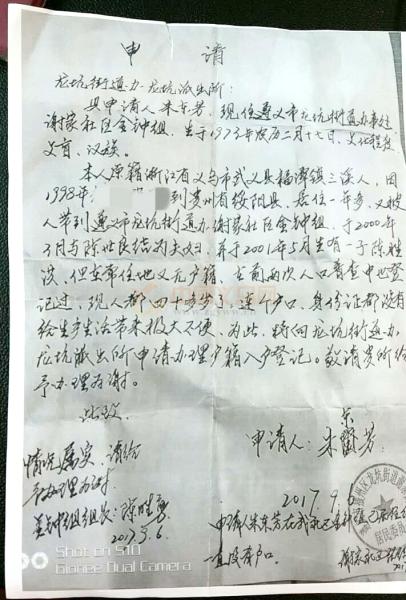 申 请
龙坑街道办龙坑派出所：
具申请人朱东芳，现住遵义市龙坑街道办事处
谢家社区金钟组，生于1973年农历二月十七日，文化程度
文盲，汉族。
本人原籍浙江省义乌市武义县 三溪人，因
1998年 到贵州省绥阳县，居住一年多，又被
人带到遵义市龙坑街道办谢家社区金钟组，于2000年
3月与陈世良结为夫妇，并于2001年5月生有一子陈胜
波，但至今住地又无户籍，在前两次人口普查中也登
记过，现人都四十多岁了，连个户口，身份证都没有
给生产生活带来极大不便，为此，特向龙坑街道办，
龙坑派出所申请办理户籍入户登记。敬请贵所给
予办理为谢。
此致
东
申请人：朱 芳
2017.9.6
情况属实，请给
予办理为谢
金钟组组长：陈胜
2017.9.6
申请人朱东芳在我社区
一直没有户口。
Shot on S10
Gionee Dual Camera